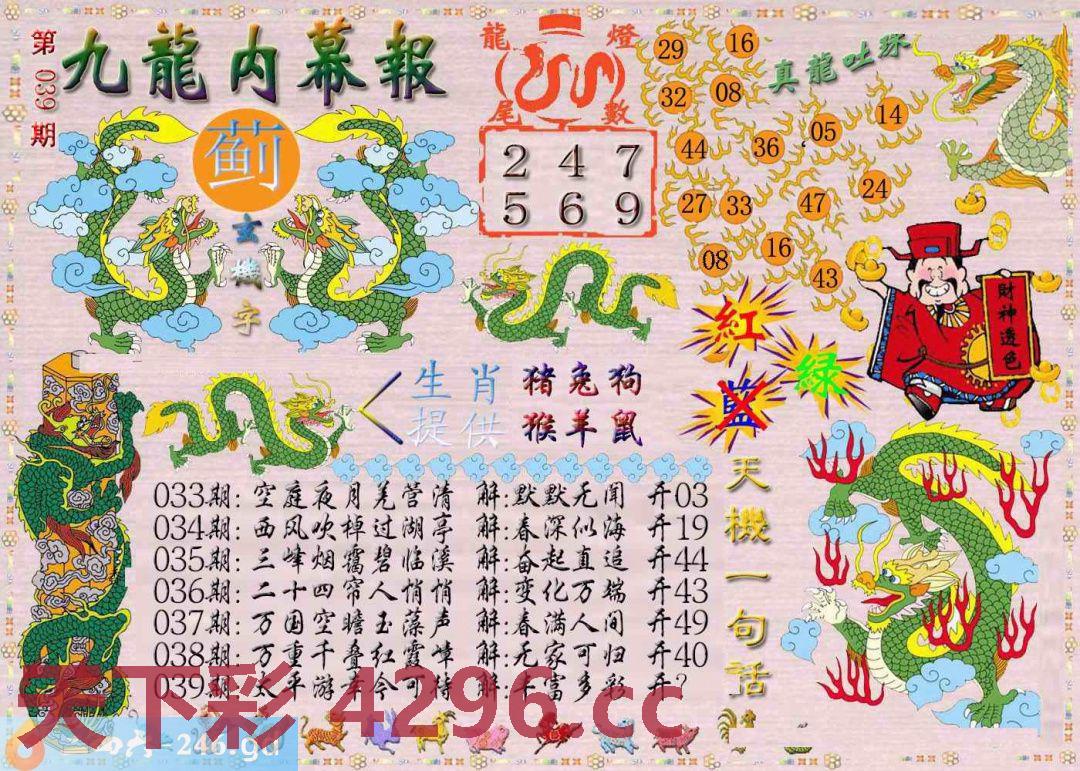 第039期
九龍内幕報
蓟
玄機字
龍燈尾數
2 4 7
5 6 9
真龍吐珠
29 16
32 08
44 36 05 14
27 33 47 24
08 16 43
財神透色
紅
藍
绿
生肖 猪兔狗
提供 猴羊鼠
天機一句话
033期: 空庭夜月羌营清 解:默默无闻 开03
034期: 西风吹棹过湖亭 解:春深似海 开19
035期: 三峰烟霭碧临溪 解:奋起直追 开44
036期: 二十四帘人悄悄 解:变化万端 开43
037期: 万国空瞻玉藻声 解:春满人间 开49
038期: 万重千叠红霞嶂 解:无家可归 开40
039期: 太平游幸今可待 解:丰富多彩 开?
天下彩 4296.cc
=246.gd